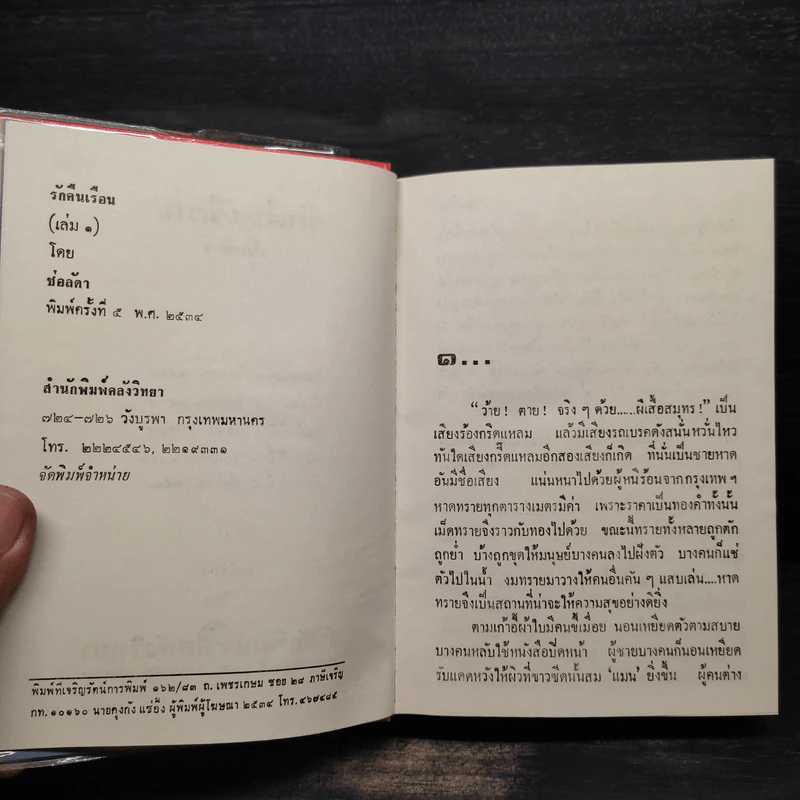 รักคืนเรือน
(เล่ม ๑)
โดย
ช่อลัดา
พิมพ์ครั้งที่ ๕ พ.ศ. ๒๕๓๔
สำนักพิมพ์คลังวิทยา
๗๒๔-๗๒๖ วังบูรพา กรุงเทพมหานคร
โทร. ๒๒๒๔๕๔๖, ๒๒๑๙๓๓๑
จัดพิมพ์จำหน่าย
พิมพ์ที่เจริญรัตน์การพิมพ์ ๑๖๒/๘๓ ถ. เพชรเกษม ซอย ๒๘ ภาษีเจริญ
กท. ๑๐๑๖๐ นายคุงกัง แซ่อึ้ง ผู้พิมพ์ผู้โฆษณา ๒๕๓๔ โทร. ๔๖๗๔๘๕
๑...
“ว้าย! ตาย! จริง ๆ ด้วย......ผีเสื้อสมุทร!” เป็น
เสียงร้องกรีดแหลม แล้วมีเสียงรถเบรคดังสนั่นหวั่นไหว
ทันใดเสียงกรี๊ดแหลมอีกสองเสียงก็เกิด ที่นั่นเป็นชายหาด
อันมีชื่อเสียง แน่นหนาไปด้วยผู้หนีร้อนจากกรุงเทพ ฯ
หาดทรายทุกตารางเมตรมีค่า เพราะราคาเป็นทองคำทั้งนั้น
เม็ดทรายจึงราวกับทองไปด้วย ขณะนี้ทรายทั้งหลายถูกตัก
ถูกย่ำ บ้างถูกขุดให้มนุษย์บางคนลงไปฝังตัว บางคนก็แช่
ตัวไปในน้ำ งมทรายมาวางให้คนอื่นคัน ๆ แสบเล่น....หาด
ทรายจึงเป็นสถานที่น่าจะให้ความสุขอย่างดียิ่ง
ตามเก้าอี้ผ้าใบมีคนขี้เมื่อย นอนเหยียดตัวตามสบาย
บางคนหลับใช้หนังสือปิดหน้า ผู้ชายบางคนก็นอนเหยียด
รับแดดหวังให้ผิวที่ขาวซีดนั้นสม ‘แมน’ ยิ่งขึ้น ผู้คนต่าง